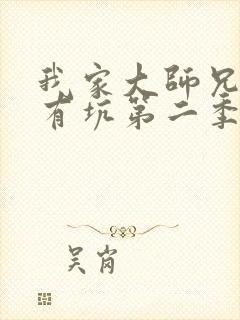 我家大師兄
有坑第二季
吴肖